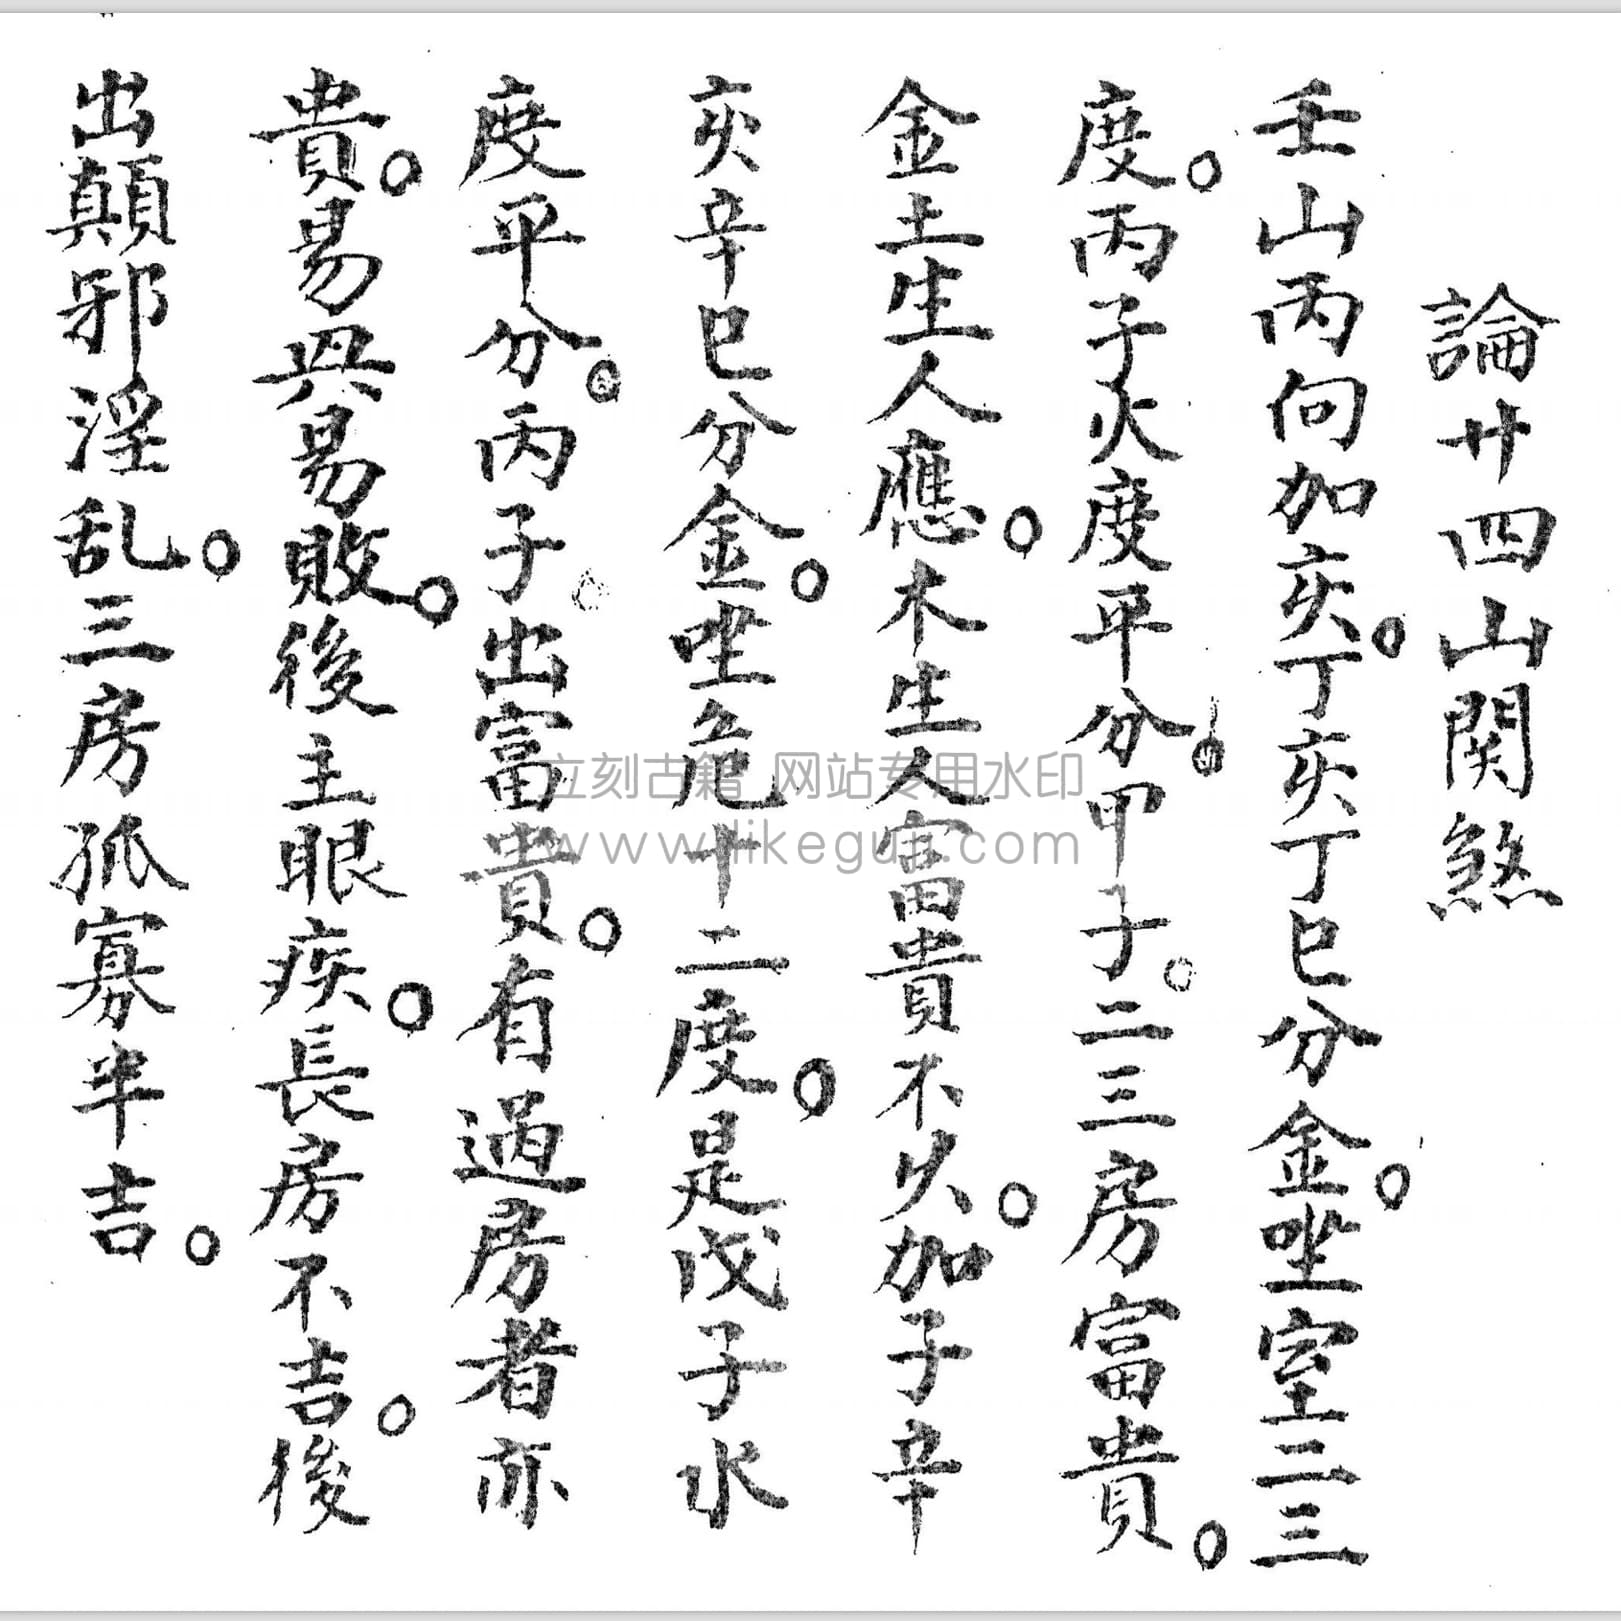 論廿四山関煞
壬山丙向加亥。丁亥丁巳分金。坐室二三
度。丙子火度平分。甲子。二三房富貴。
金土生人應。木生人富貴不久。加子辛
亥辛巳分金。坐危十二度。是戊子水
度平分。丙子。出富貴。有過房者亦
貴。易興易敗。後主眼疾。長房不吉。後
出顛邪淫乱。三房孤寡半吉。
立刻古籍 网站专用水印
www.likeguji.com